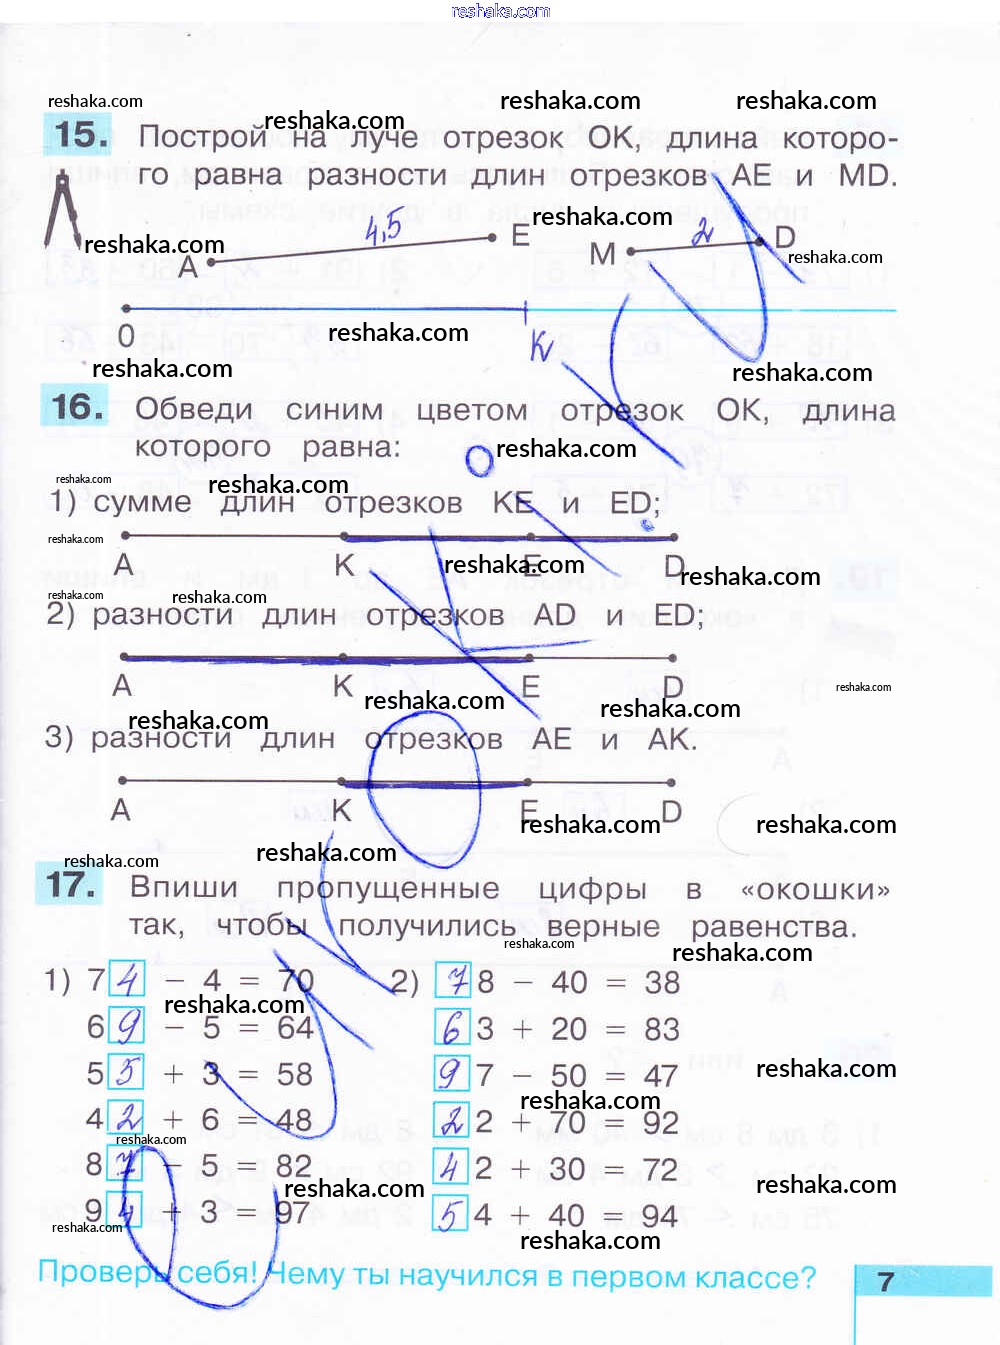 reshaka.com
reshaka.com
reshaka.com reshaka.com reshaka.com
15. Построй на луче отрезок ОК, длина которо-
го равна разности длин отрезков АЕ и MD.
reshaka.com
reshaka.com
4,5 2
А Е М D
reshaka.com
О К
reshaka.com
reshaka.com reshaka.com
16. Обведи синим цветом отрезок ОК, длина
которого равна:
reshaka.com
reshaka.com reshaka.com
1) сумме длин отрезков КЕ и ED;
reshaka.com
А К Е D
reshaka.com reshaka.com
reshaka.com reshaka.com
2) разности длин отрезков AD и ED;
А К Е D
reshaka.com
reshaka.com reshaka.com reshaka.com
3) разности длин отрезков АЕ и АК.
А К Е D
reshaka.com reshaka.com
reshaka.com reshaka.com
17. Впиши пропущенные цифры в «окошки»
так, чтобы получились верные равенства.
reshaka.com reshaka.com
1) 74 − 4 = 70 2) 78 − 40 = 38
reshaka.com
69 − 5 = 64 63 + 20 = 83
55 + 3 = 58 97 − 50 = 47
reshaka.com
reshaka.com
42 + 6 = 48 22 + 70 = 92
reshaka.com
87 − 5 = 82 42 + 30 = 72
reshaka.com reshaka.com
94 + 3 = 97 54 + 40 = 94
reshaka.com reshaka.com
Проверь себя! Чему ты научился в первом классе? 7